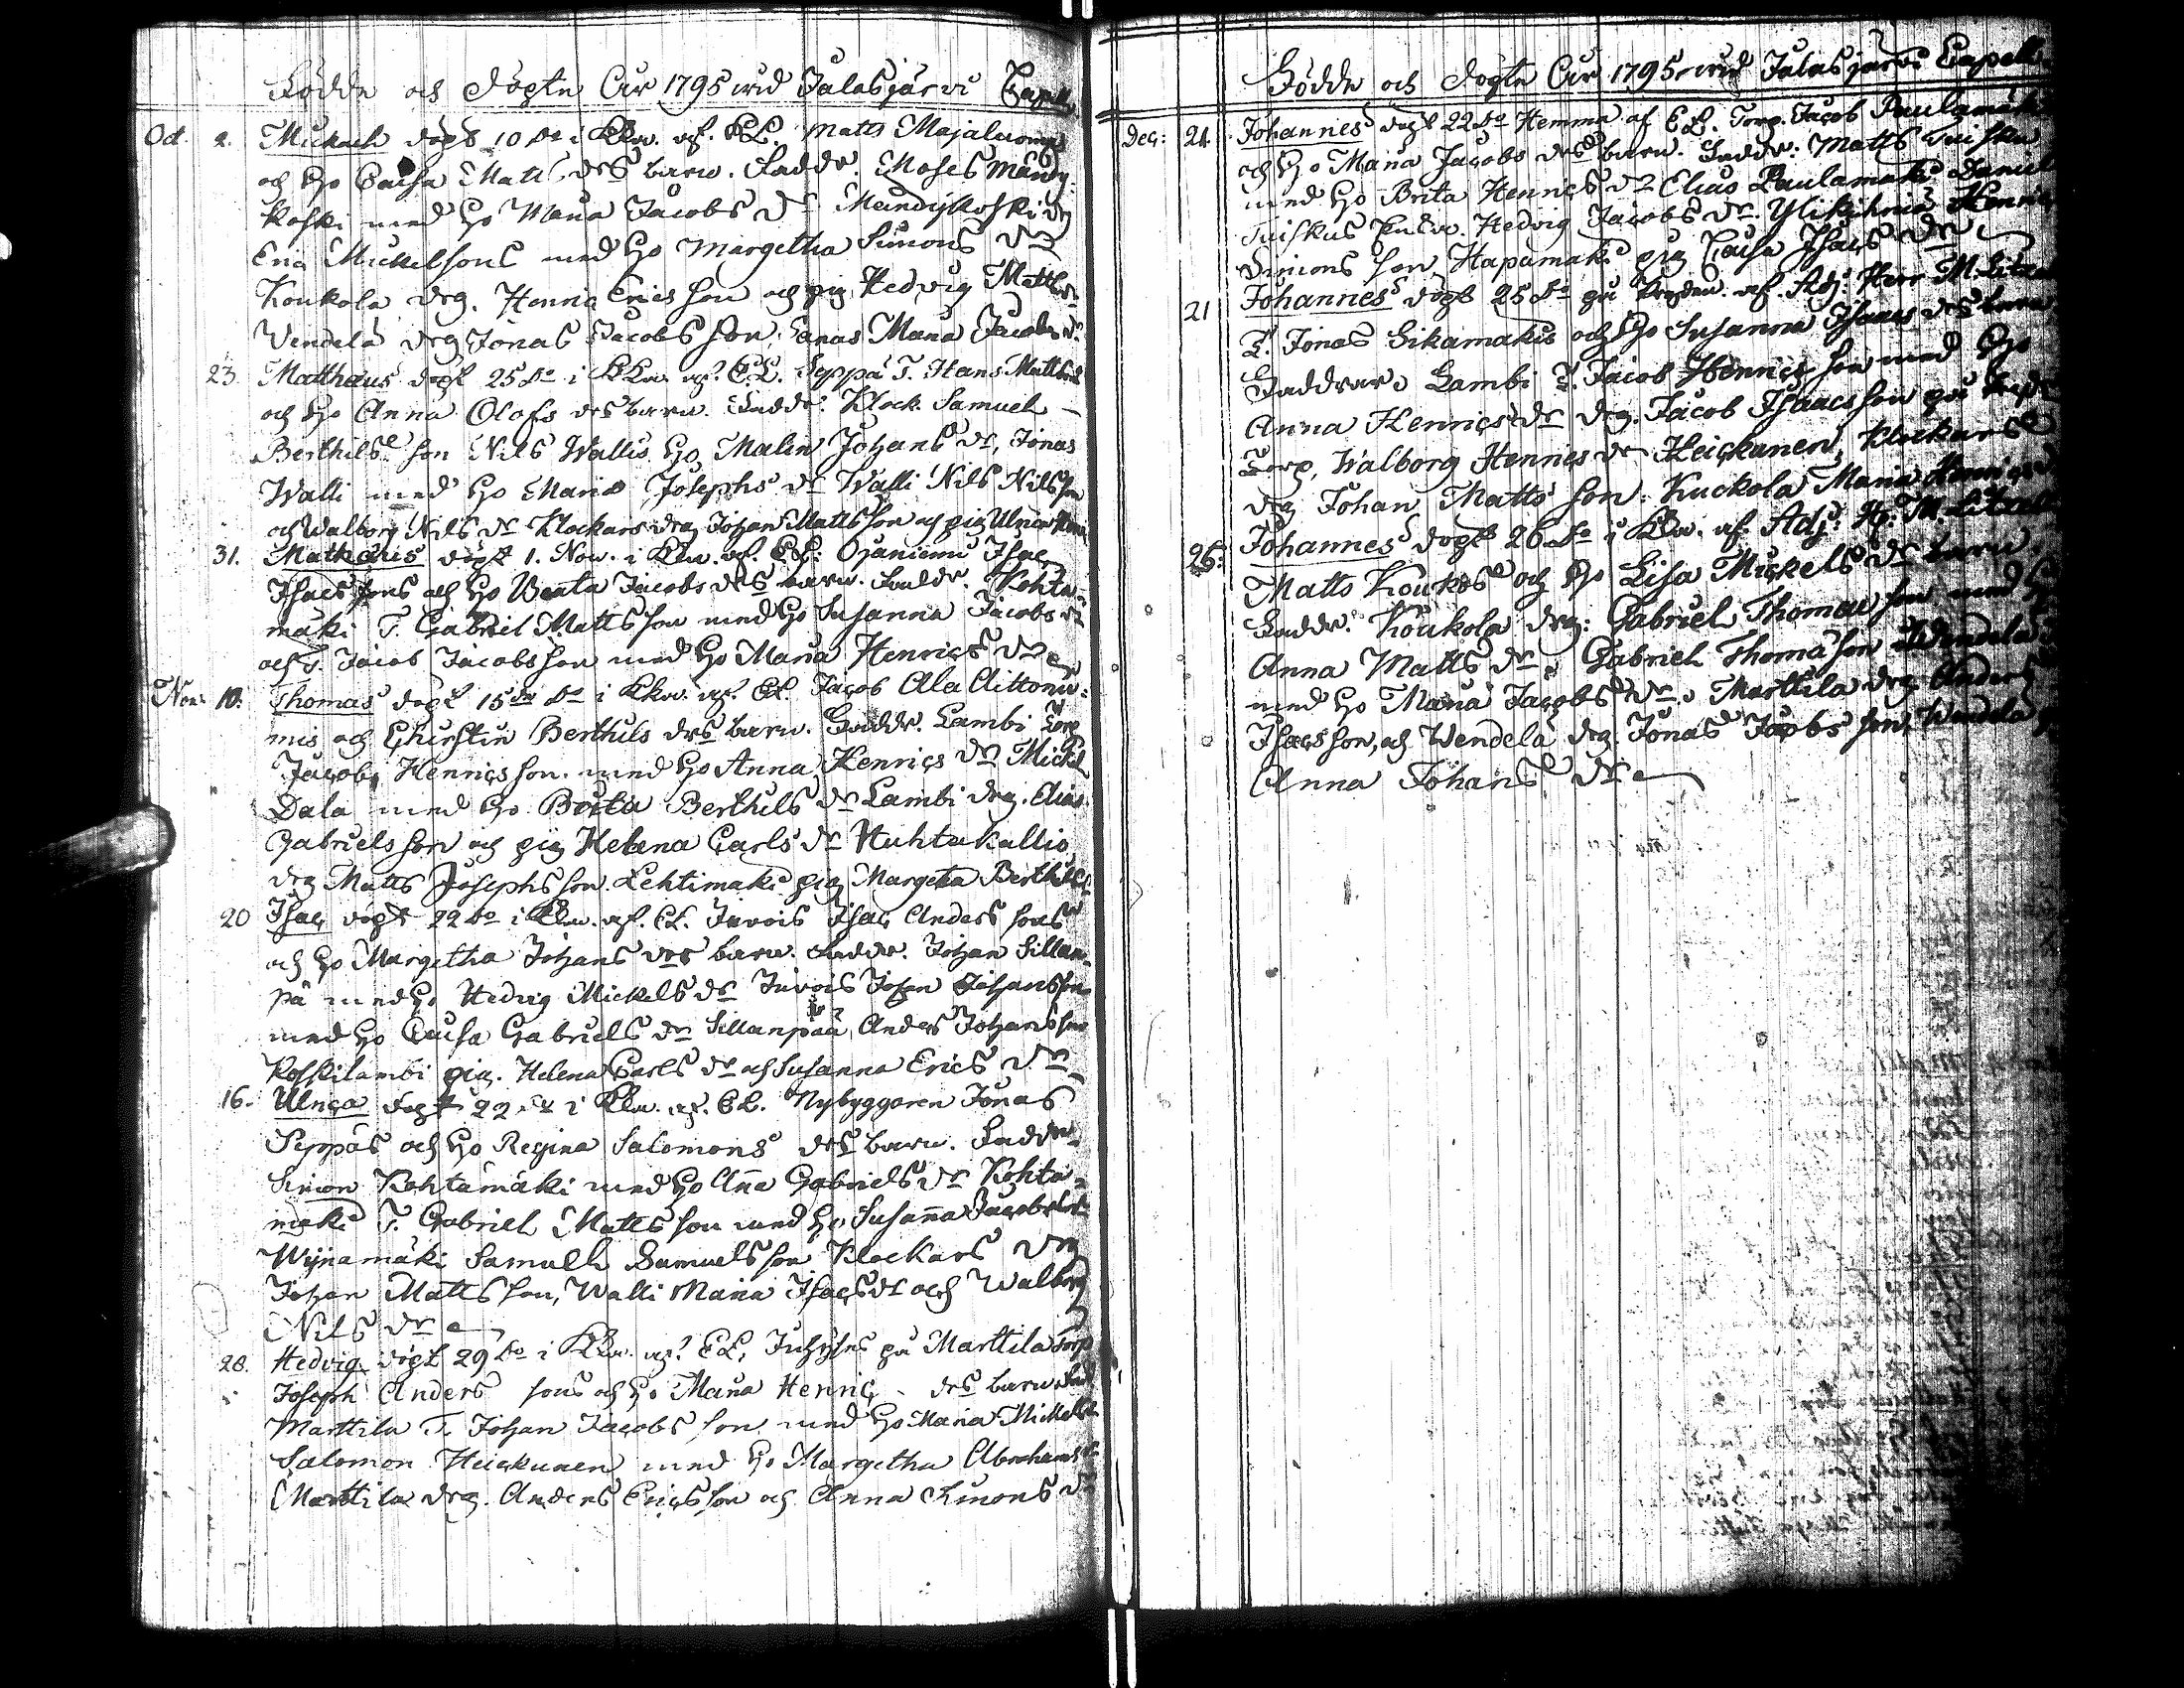 Födde och döpte Åir 1795 wid Jalasjärvi Capell
Oct. 2. Mickael döpt 10 do i Kkn. af. EL. Matts Majaluoma
och Ho Caisa Matts drs barn. Faddr. Moses Mändy
koski med Ho Maria Jacobs dr Mändykoski drg
Eric Mickelsons med Ho Margetha Simons dr
Koukola drg. Henric Ericsson och pig Hedvig Matts dr.
Vendelä drg Jonas Jacobsson, Maria Jacobs dr.
23. Matthæus döpt 25 do i KKn. af. E.L. Seppä T. Hans Matts
och Ho Anna Olofs drs barn. Faddr. Klock. Samuel
Berthils son Nils Wallis Ho Malin Johans dr, Jonas
Walli med Ho Maria Josephs dr Walli Nils Nilsson
och Walborg Nils dr Klockars drg Johan Mattsson och pig Ulrica
31. döpt 1. Nov. i Kkn. af. EL: Ojaniemi Isac
Isacs sons och Ho Beata Jacobs drs barn. Faddr. Kohta-
mäki T. Gabriel Mattsson med Ho Susanna Jacobs dr
och T. Jacob Jacobsson med Ho Maria Henrics dr
Nov: 10. Thomas döpt 15 do i Kkn. af. EL. Jacob Ala Aittonie-
mis och Chirstin Berthils drs barn. Faddr. Lambi Torp
Jacob Henricsson med Ho Anna Henrics dr Mickel
Dala med Ho Brita Berthils dr Lambi drg. Elias
Gabrielsson och pig Helena Carls dr Huhtakallio
drg Matts Josephsson. Lehtimäki pig Margeta Berthils
20 Isac döpt 22 do i Kkn. af. EL. Juvois Isac Anders sons
och Ho Margetha Johans drs barn. Faddr. Johan Sillan-
pä med Ho Hedvig Mickels dr Juvois Johan Johansson
med Ho Caisa Gabriels dr Sillanpää, Anders Johansson
Koskilambi pig. Helena Carls dr och Susanna Erics dr
16. Ulrica döpt 22 do i Kkn. af. EL. Nybyggaren Jonas
Seppäs och Ho Regina Salomons drs barn. Faddr.
Simon Kohtamäki med Ho Aña Gabriels dr Kohta-
mäki T. Gabriel Mattsson med Ho Susaña Jacobs dr
Wijnamäki Samuell Samuelsson Klockars drg
Johan Mattsson, Walli Maria Isacs dr och Walborg
Nils dr
28. Hedvig döpt 29 do i Kkn. af. EL, Inhyses på Marttila Torp
Joseph Anders sons och Ho Maria Henric drs barn. Fadd
Marttila T. Johan Jacobsson med Ho Maria Mickels dr
Salomon Heickunen med Ho Margetha Abrahams dr
Marttila drg. Anders Ericsson och Anna Simons dr
Födde och döpte Åir 1795 wid Jalasjärvi Capell
Dec: 21. Johannes döpt 22 do Hemma af EL. Torp. Jacob Paulamäki
och Ho Maria Jacobs drs barn. Faddr: Matts Luiska
med Ho Brita Henrics dr Elias Paulamäki Daniel
Hedvig Jacobs dr. Henric
Simons son Hapamäki pig Caisa Isacs dr
21 Johannes döpt 25 do på af. Adj: Herr M. Litzen
T. Jonas Sikamäkis och Ho Susanna Isaacs drs barn
Faddrar: Lambi T. Jacob Henrics son med Ho
Anna Henrics dr drg. Jacob Isaacsson på
Torp, Walborg Henrics dr Heickanen, Klockars
drg Johan Matts son. Kuckola Maria Henrics dr
26: Johannes döpt 26 do i Kkn. af. Adj: H. M. Litzen
Matts Koukos och Ho Lisa Mickels dr barn.
Faddr: Koukola drg: Gabriel Thomæ son med Ho
Anna Matts dr, Gabriel Thomäson Wendelä
med Ho Maria Jacobs dr, Marttila drg Anders
Isacsson, och Wendelä drg. Jonas Jacobs son, Wendelä p
Anna Johans dr